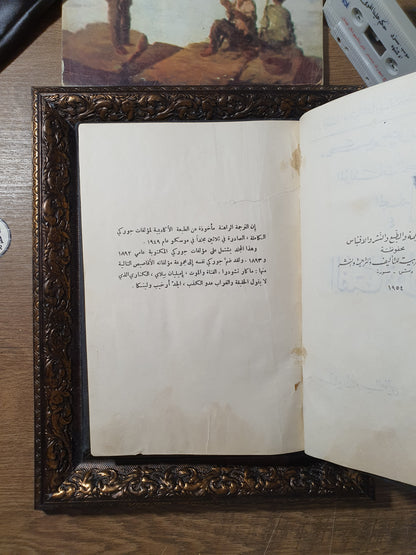 إن الترجمة الراهنة مأخوذة عن الطبعة الأكاديمية لمؤلفات جوركي
الكاملة، الصادرة في ثلاثين مجلداً في موسكو عام ١٩٤٩.
وهذا المجلد يشتمل على مؤلفات جوركي المكتوبة عامي ١٨٩٢
و ١٨٩٣. ولقد ضم جوركي نفسه إلى مجموعة مؤلفاته الأقاصيص التالية
منها: ماكار تشودرا، الفتاة والموت، إميليان بيلاي، الكناري الذي
لا يقول الحقيقة والغراب عدو الكذب، الجد أرخيب ولينكا.
والطبع والنشر والاقتباس
محفوظة
والترجمة والنشر
سورية
١٩٥٤